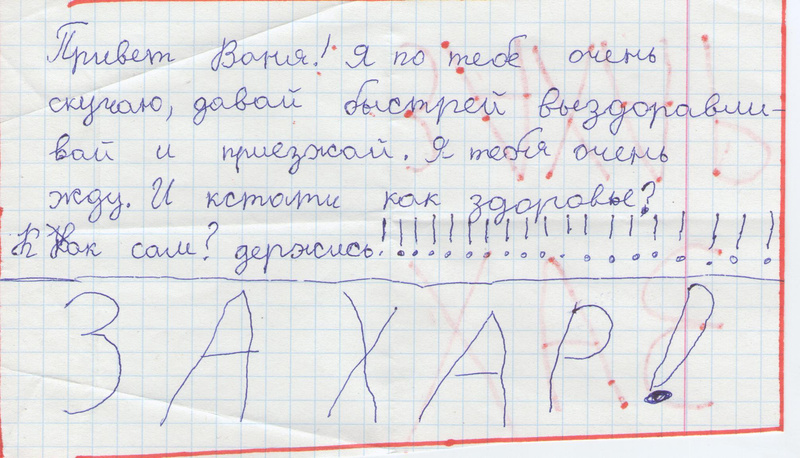 Привет Ваня! Я по тебе очень
скучаю, давай быстрей выздоравли-
вай и приезжай. Я тебя очень
жду. И кстати как здоровье?
К Как сам? держись!!!!!!!!!!!!!!!!!!!!
ЗАХАР!